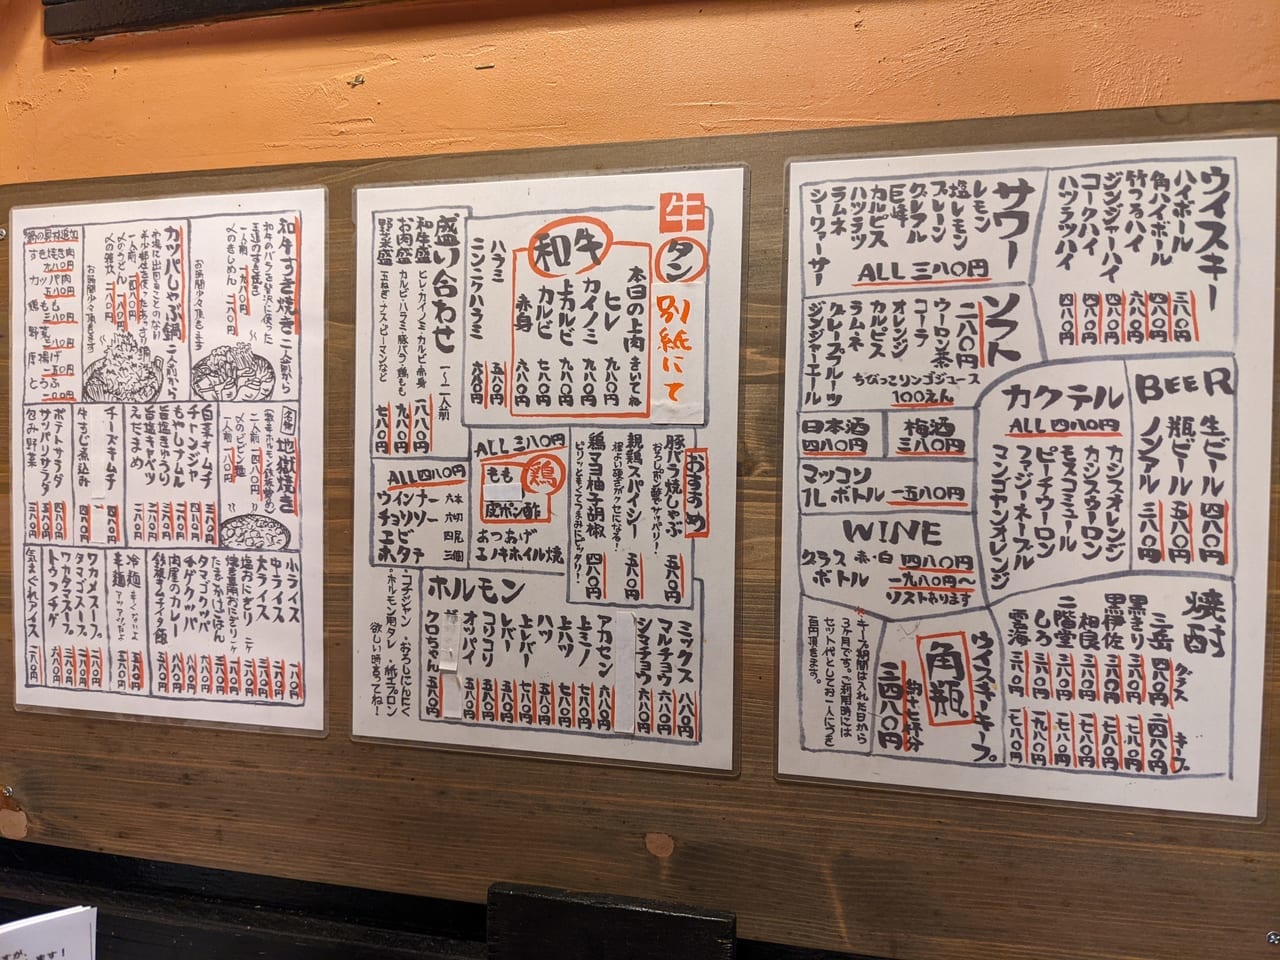 和牛すき焼き 二人前から
和牛のバラを贅沢に使った
王道のすき焼き
一人前 一九八〇円
〆のきしめん 二八〇円
お時間少々頂きます
カッパしゃぶ鍋 二人前から
〆のうどん 二八〇円
〆の雑炊 二八〇円
お時間少々頂きます
鍋の具材追加
すき焼き肉
カッパ肉
五八〇円
鶏もも
三八〇円
野菜
厚揚げ
とうふ
二〇〇円
名物 地獄焼き
一人前 一四八〇円
白菜キムチ
チャンジャ
もやしナムル
旨塩きゅうり
旨塩キャベツ
えだまめ
チーズキムチ
牛すじ煮込み
ポテトサラダ
サッパリサラダ
包み野菜
小ライス
中ライス
大ライス
塩おにぎり 二ケ
たまかけごはん
タマゴクッパ
チゲクッパ
肉屋のカレー
鉄板キムチーズ飯
冷麺
辛麺
ワカメスープ
タマゴスープ
ワカタマスープ
トウフチゲ
気まぐれアイス
牛タン 別紙にて
和牛
本日の上肉 きいてね
ヒレ 一九八〇円
カイノミ 九八〇円
上カルビ 九八〇円
カルビ 七八〇円
赤身 六八〇円
ハラミ 五八〇円
ニンニクハラミ 六八〇円
盛り合わせ 一〜二人前
和牛盛 ヒレ・カイノミ・カルビ・赤身 一八八〇円
お肉盛 カルビ・ハラミ・豚バラ・鶏もも 九八〇円
野菜盛 玉ねぎ・ナス・ピーマンなど 七八〇円
おすすめ
豚バラ焼しゃぶ 五八〇円
おろしポン酢でサッパリ!
親鶏スパイシー 五八〇円
程よい硬さがクセになる!
鶏マヨ柚子胡椒 四八〇円
ピリッときいてつまみにピッタリ!
ALL三八〇円
鶏
もも
皮ポン酢
あつあげ
エノキホイル焼
ALL四八〇円
ウインナー 六本
チョリソー 六切
エビ 四尾
ホタテ 三個
ホルモン
ミックス 八八〇円
マルチョウ 六八〇円
シマチョウ 六八〇円
アカセン 六八〇円
上ミノ 七八〇円
上ハツ 七八〇円
ハツ 五八〇円
上レバー 七八〇円
レバー 五八〇円
コリコリ 五八〇円
オッパイ 五八〇円
クロちゃん 五八〇円
・コチジャン ・おろしにんにく
・ホルモン用タレ ・紙エプロン
欲しい時言ってね!
ウイスキー
ハイボール 三八〇円
角ハイボール 四八〇円
竹つるハイ 六八〇円
ジンジャーハイ 四八〇円
コークハイ 四八〇円
ハブラツハイ 四八〇円
サワー
レモン
塩レモン
プレーン
グレフル
巨峰
カルピス
ハツラツ
ラムネ
シークヮーサー
ALL三八〇円
ソフト
二八〇円
ウーロン茶
コーラ
オレンジ
カルピス
ラムネ
グレープフルーツ
ジンジャエール
ちびっこリンゴジュース
100えん
BEER
生ビール 四八〇円
瓶ビール 五八〇円
ノンアル 三八〇円
カクテル
ALL四八〇円
カシスオレンジ
カシスウーロン
モスコミュール
ピーチウーロン
ファジーネーブル
マンゴヤンオレンジ
梅酒
三八〇円
日本酒
四八〇円
マッコリ
1Lボトル 一五八〇円
WINE
グラス 赤・白 四八〇円
ボトル 一九八〇円〜
リストあります
焼酎
グラス キープ
三岳 四八〇円 二四八〇円
黒きり 三八〇円 一七八〇円
黒伊佐 三八〇円 一七八〇円
相良 三八〇円 一七八〇円
二階堂 三八〇円 一七八〇円
しろ 三八〇円 一九八〇円
雲海 三八〇円 一七八〇円
ウイスキーキープ
角瓶
約十七杯分
三四八〇円
※キープ期間は入れた日から
3ヶ月です。ご利用時には
セット代としてお一人につき
百円頂きます。
ますが、
ます!